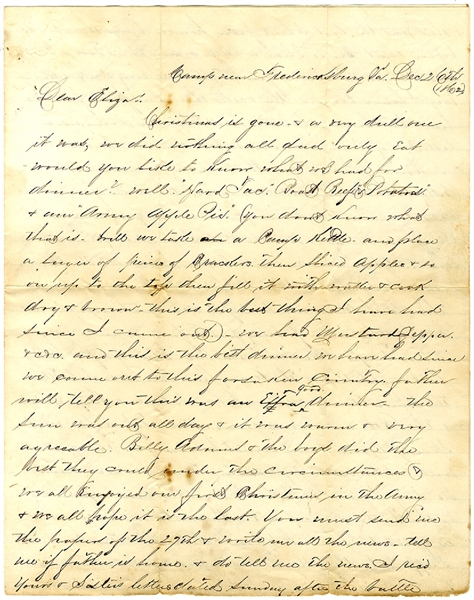 Camp near Fredericksburg Va. Dec 26th
1862
Dear Eliza.
Christmas is gone & a very dull one
it was, we did nothing all day only Eat
would you like to know what we had for
dinner? well. "Hard Tac. Roast Beef & Potatoes
& an Army Apple Pie. (you dont know what
that is. well we take a Camp Kettle and place
a layer of pieces of Crackers then Sliced Apples & so
on up to the top then fill it with water & cook
dry & brown - this is the best thing I have had
since I came out) - we had Mustard Pepper
&c &c. and this is the best dinner we have had since
we came out to this forsaken Country. father
will tell you this was an Extra good dinner. The
Sun was out all day & it was warm & very
agreeable. Billy Adams & the boys did the
best they could under the circumstances &
we all Enjoyed our first Christmas in the Army
& we all hope it is the last. You must send me
the papers of the 27th & write me all the news - tell
me if father is home. & do tell the news I read
Yours & Sisters letters dated Sunday after the battle